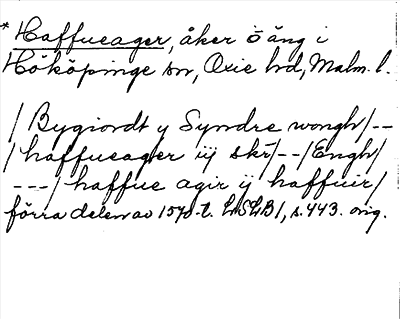 * Haffueager, åker o äng i
Hököpinge sn, Oxie hd, Malm. l.
/ Bygiordt y Syndre wongh/--
/haffueager iij skr/--/Engh/
---/ haffue agir ij haffuir/
förra delen av 1570-t. LSLB1, s. 443. orig.